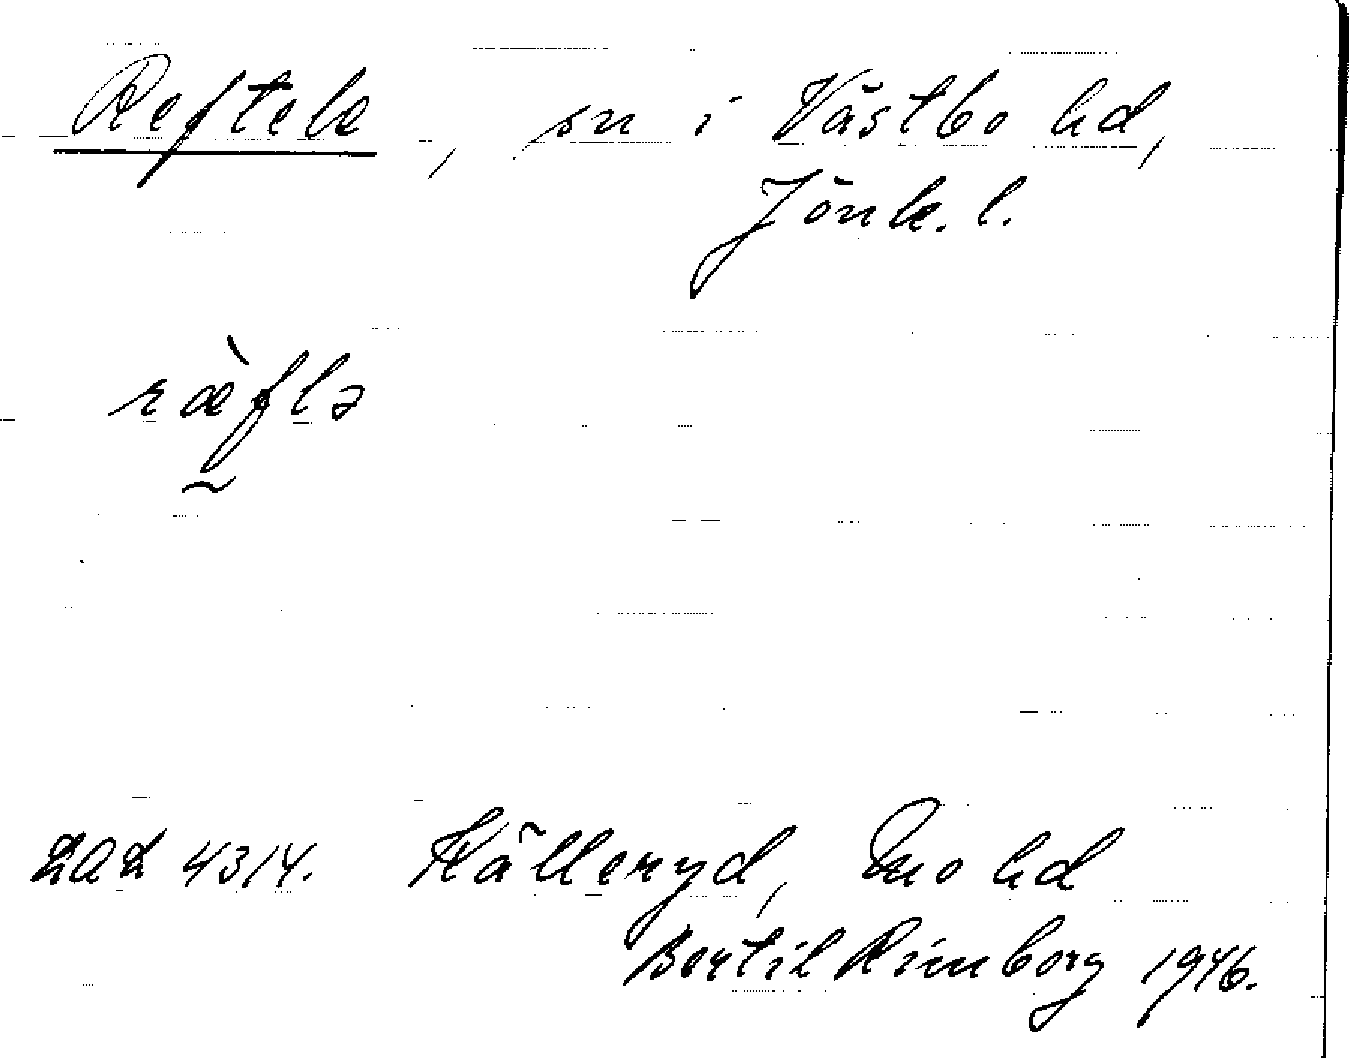 Reftele, sn i Västbo hd,
Jönk. l.
ræ̀flə
LAL 4314. Källeryd, Mo hd
Bertil Rimborg 1946.